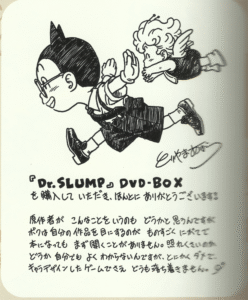 『Dr.SLUMP』DVD-BOX
を購入していただき、ほんとにありがとうございます!
原作者が こんなことをいうのも どうかと思うんですが
ボクは自分の作品を目にするのが ものすごくにがてで
本になっても まず開くことがありません。照れくさいのか
どうか 自分でも よくわからないんですが、とにかくダメで、
キャラデザインしたゲームでさえ、どうも落ち着きません。